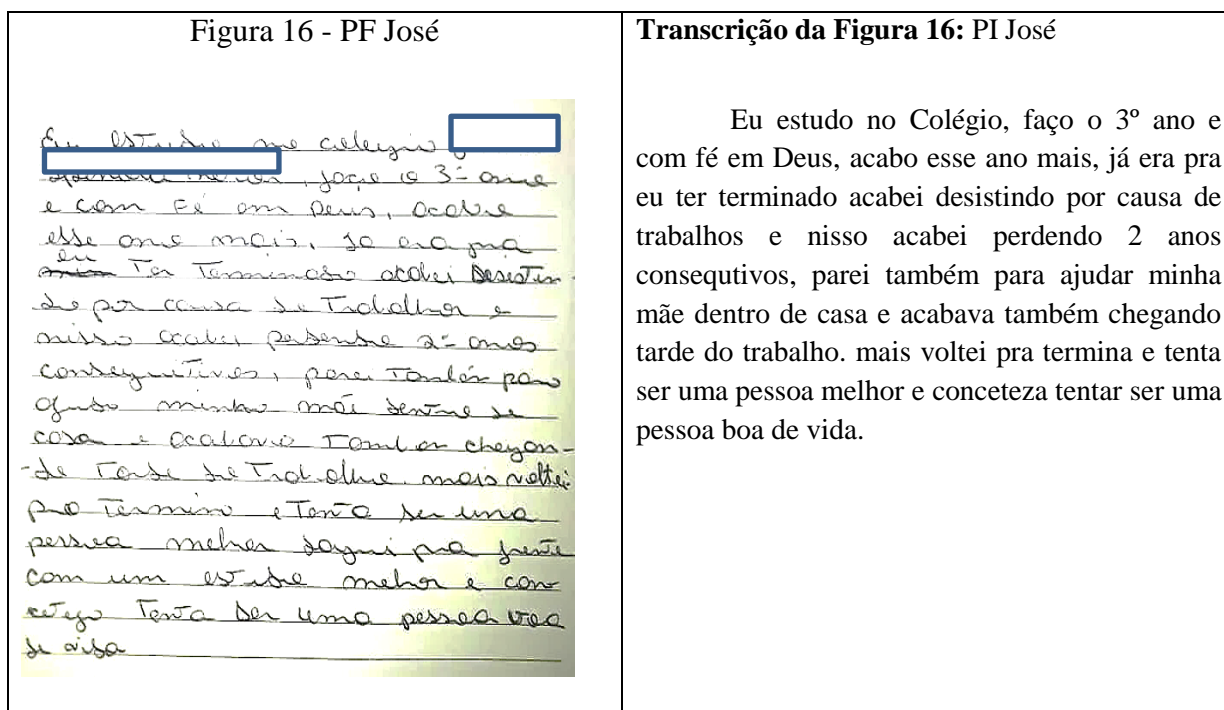 Figura 16 - PF José
Eu estudo no colegio
faço o 3º ano
e com Fé em Deus, acabo
esse ano mais, ja era pra
eu Ter Terminado acabei desistin-
do por causa de Trabalhos e
nisso acabei perdendo 2º anos
consequitivos, parei Também para
minha mãe dentro de
casa e acabava Também chegan-
-do Tarde do Trabalho. mais voltei
pra Termina e Tenta ser uma
pessoa melhor daqui pra frente
com um estudo melhor e con-
Tenta ser uma pessoa boa
de vida
Transcrição da Figura 16: PI José
Eu estudo no Colégio, faço o 3º ano e
com fé em Deus, acabo esse ano mais, já era pra
eu ter terminado acabei desistindo por causa de
trabalhos e nisso acabei perdendo 2 anos
consequtivos, parei também para ajudar minha
mãe dentro de casa e acabava também chegando
tarde do trabalho. mais voltei pra termina e tenta
ser uma pessoa melhor e conceteza tentar ser uma
pessoa boa de vida.